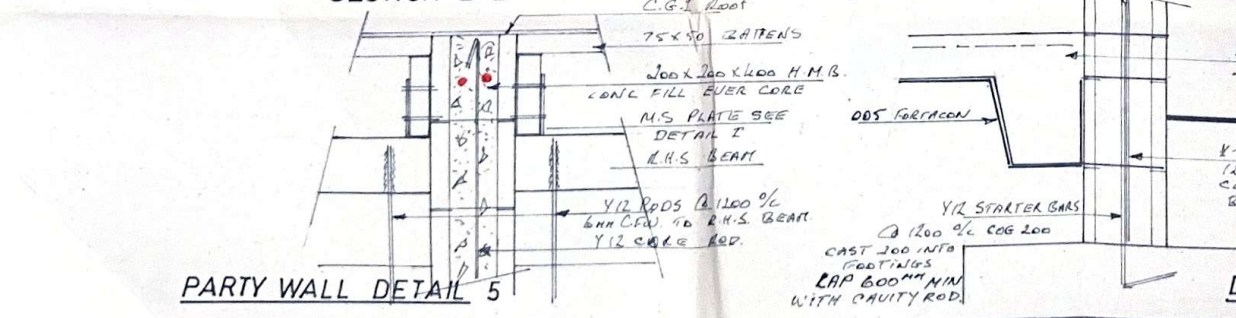 C.G.I. Roof
75x50 BATTENS
200 x 200 x 400 H.M.B.
CONC FILL EVER CORE
M.S PLATE SEE
DETAIL I
R.H.S BEAM
Y12 RODS @ 1200 O/C
6MM C.F.W. TO R.H.S. BEAM.
Y12 CORE ROD.
PARTY WALL DETAIL 5
005 FORTACON
Y12 STARTER BARS
@ 1200 O/C COG 200
CAST 200 INTO
FOOTINGS
LAP 600MM MIN
WITH CAVITY ROD.